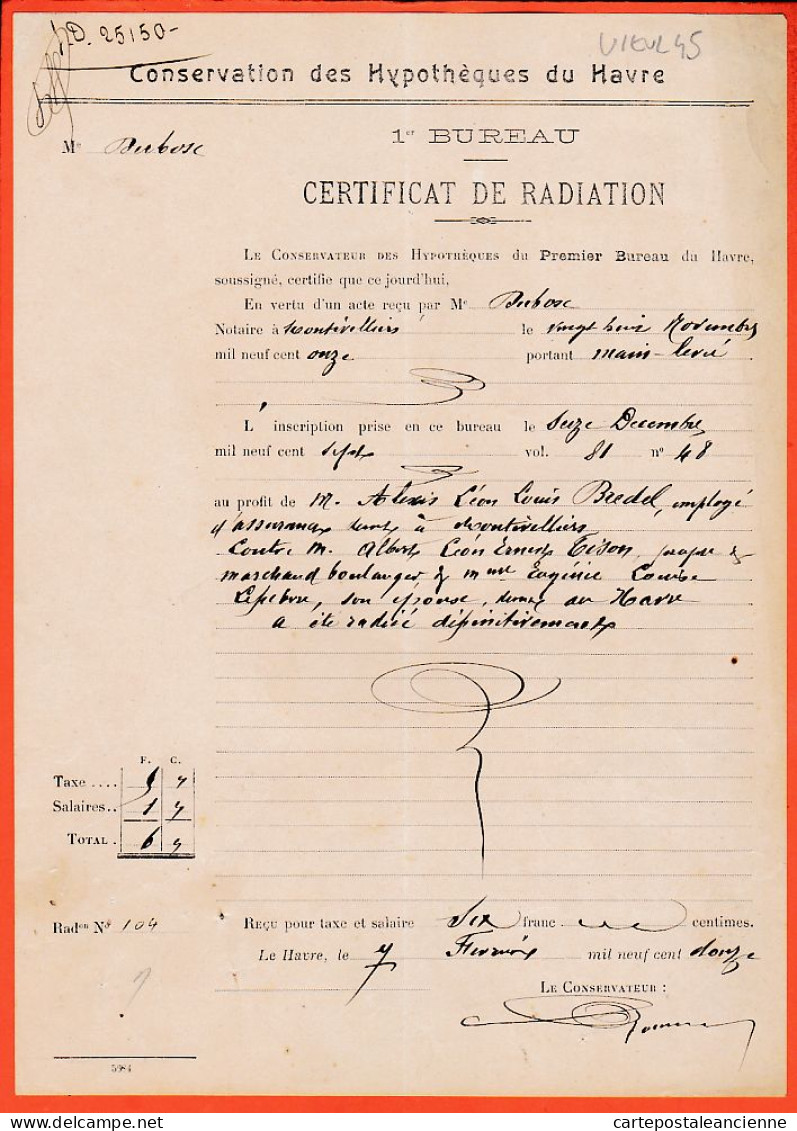 D. 25150-
VIEUL 45
Conservation des Hypothèques du Havre
Me Dubosc
1er BUREAU
CERTIFICAT DE RADIATION
LE CONSERVATEUR DES HYPOTHÈQUES du Premier Bureau du Havre,
soussigné, certifie que ce jourd'hui,
En vertu d'un acte reçu par Me Dubosc
Notaire à Montivilliers le vingt huit Novembre
mil neuf cent onze portant main-levée
L' inscription prise en ce bureau le Seize Décembre
mil neuf cent sept vol. 81 n° 48
au profit de M. Alexis Léon Louis Bredel, employé
d'assurances demt à Montivilliers
Contre M. Albert Léon Ernest Tison,
marchand boulanger & Mme Eugénie Louise
Lefebvre, son épouse, demt au Havre
a été radiée définitivement
F. C.
Taxe ....
Salaires .. 1 "
TOTAL . 6 "
Radon N° 104
REÇU pour taxe et salaire Six franc centimes.
Le Havre, le 7 Février mil neuf cent douze
LE CONSERVATEUR :
5984
https://www.delcampe.net
cartepostaleancienne